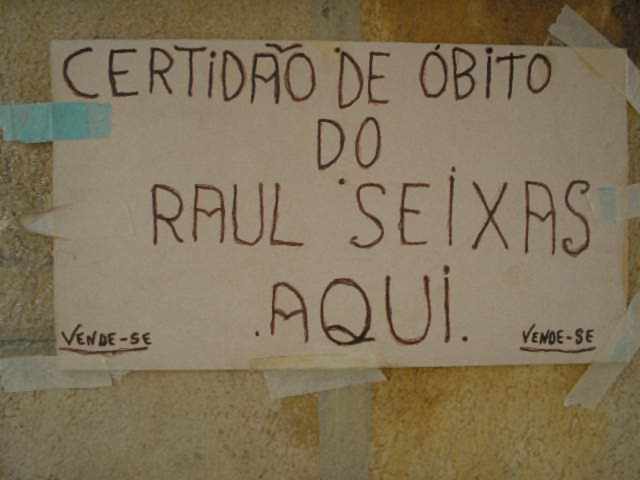 CERTiDÃO DE ÓBiTO
DO
RAUL SEiXAS
.AQUi.
VENDE-SE VENDE-SE